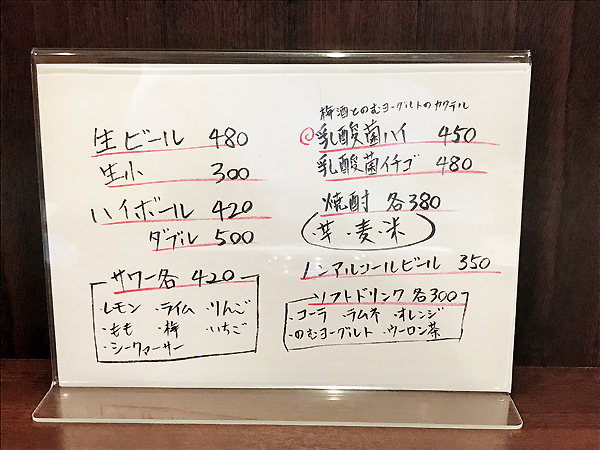 生ビール 480
生小 300
ハイボール 420
ダブル 500
サワー各 420
・レモン ・ライム ・りんご
・もも ・梅 ・いちご
・シークァーサー
梅酒とのむヨーグルトのカクテル
乳酸菌ハイ 450
乳酸菌イチゴ 480
焼酎 各380
芋・麦・米
ノンアルコールビール 350
ソフトドリンク 各300
・コーラ ・ラムネ ・オレンジ
・のむヨーグルト ・ウーロン茶